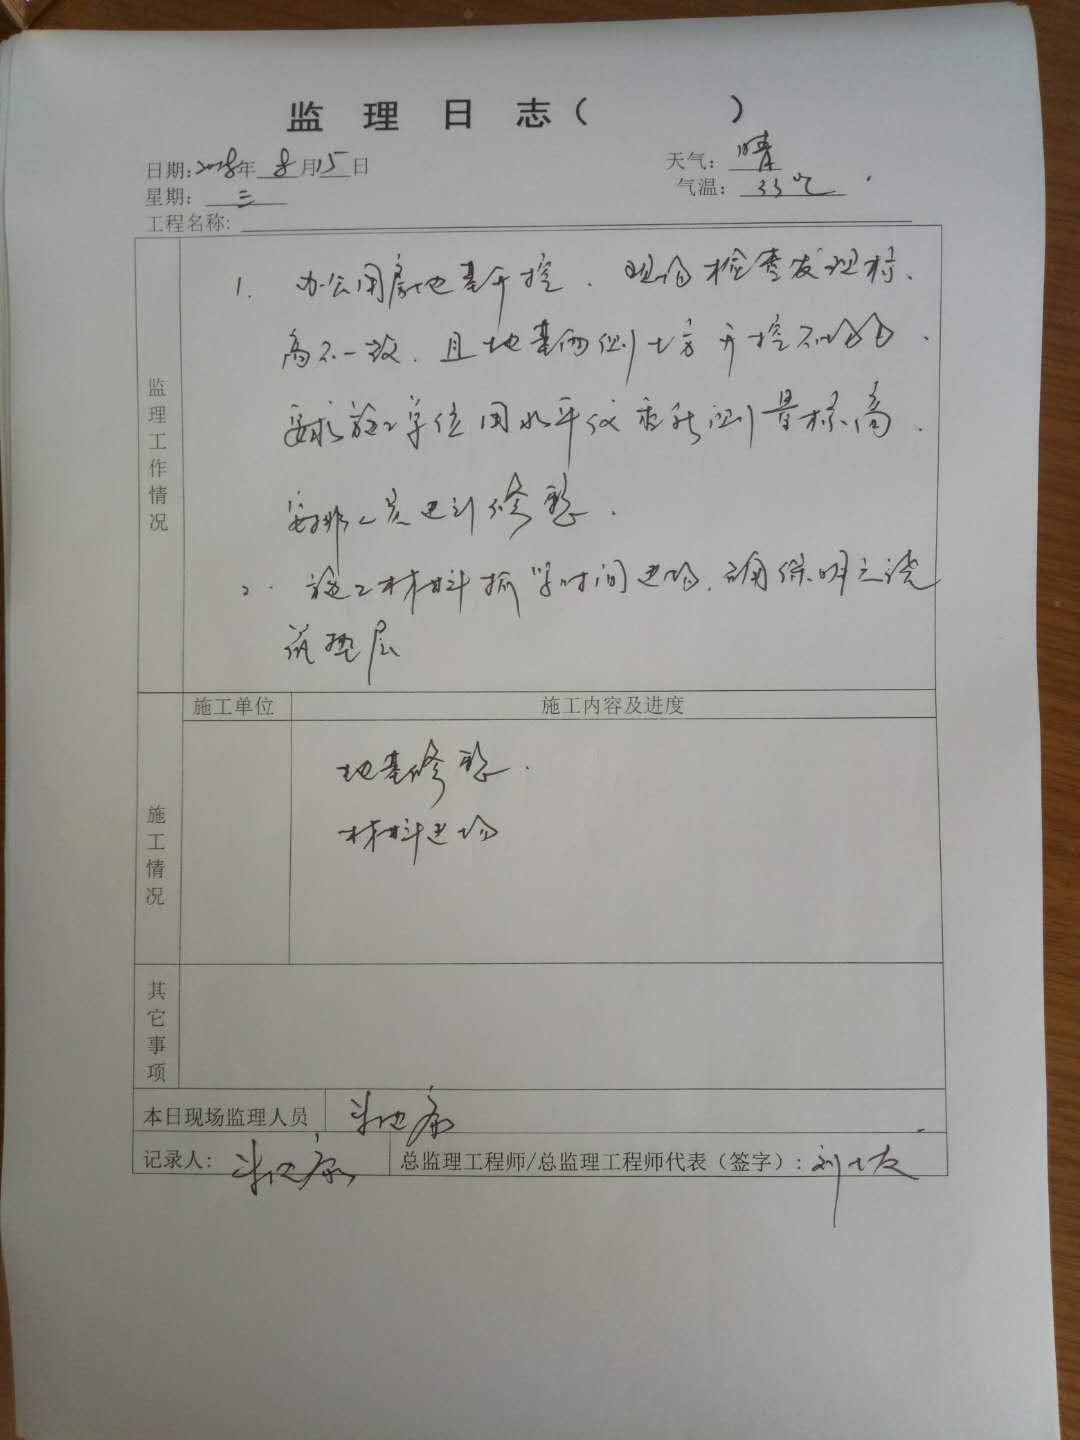 监 理 日 志（ ）
日期：2018年 8 月15日 天气：晴
星期：三 气温：33℃
工程名称：
监理工作情况
1. 办公用房地基开挖、现场检查发现标
高不一致、且地基两侧土方开挖不
要求施工单位用水平仪重新测量标高、
安排人员进行修整.
2. 施工材料抓紧时间进场、确保明天浇
筑垫层
施工单位 施工内容及进度
施工情况
地基修整.
材料进场
其它事项
本日现场监理人员
记录人： 总监理工程师/总监理工程师代表（签字）：刘